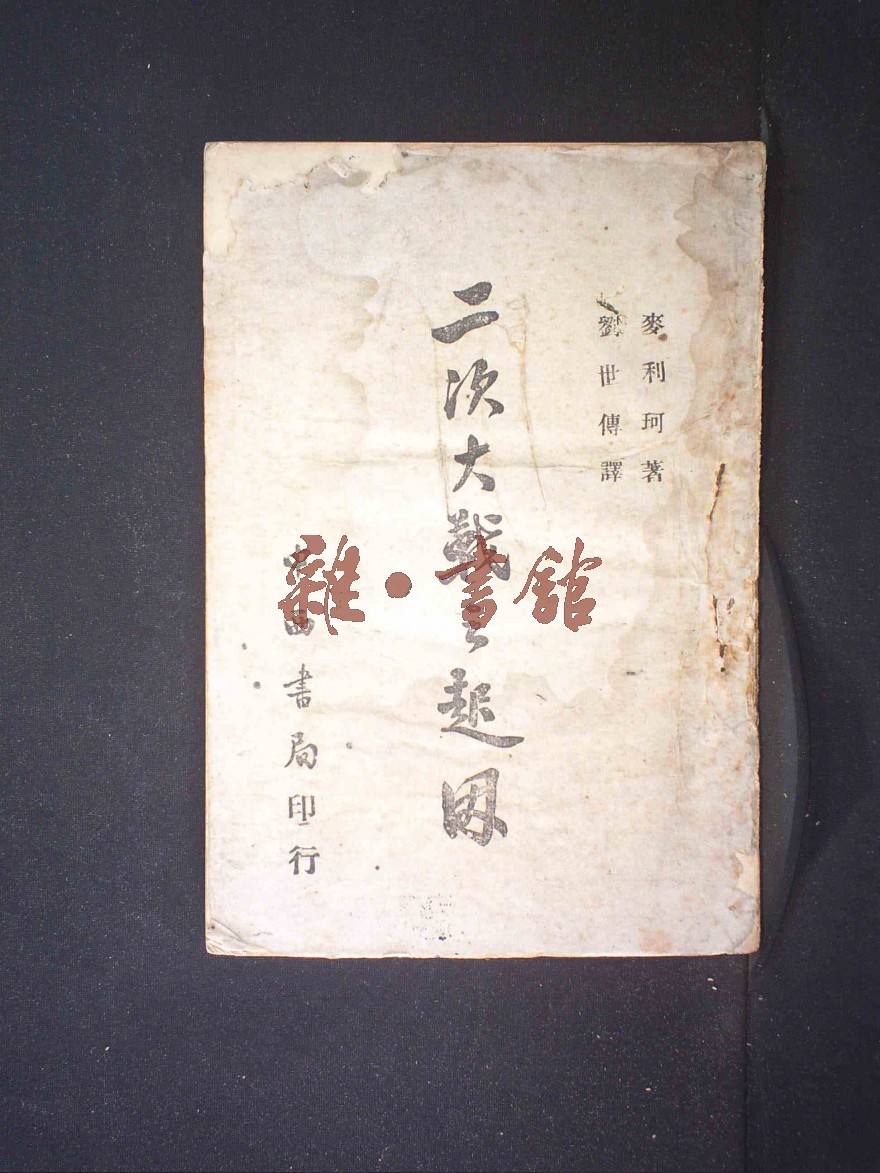 麥利珂著
劉世傳譯
二次大戰之起因
西書局印行
雜·書館